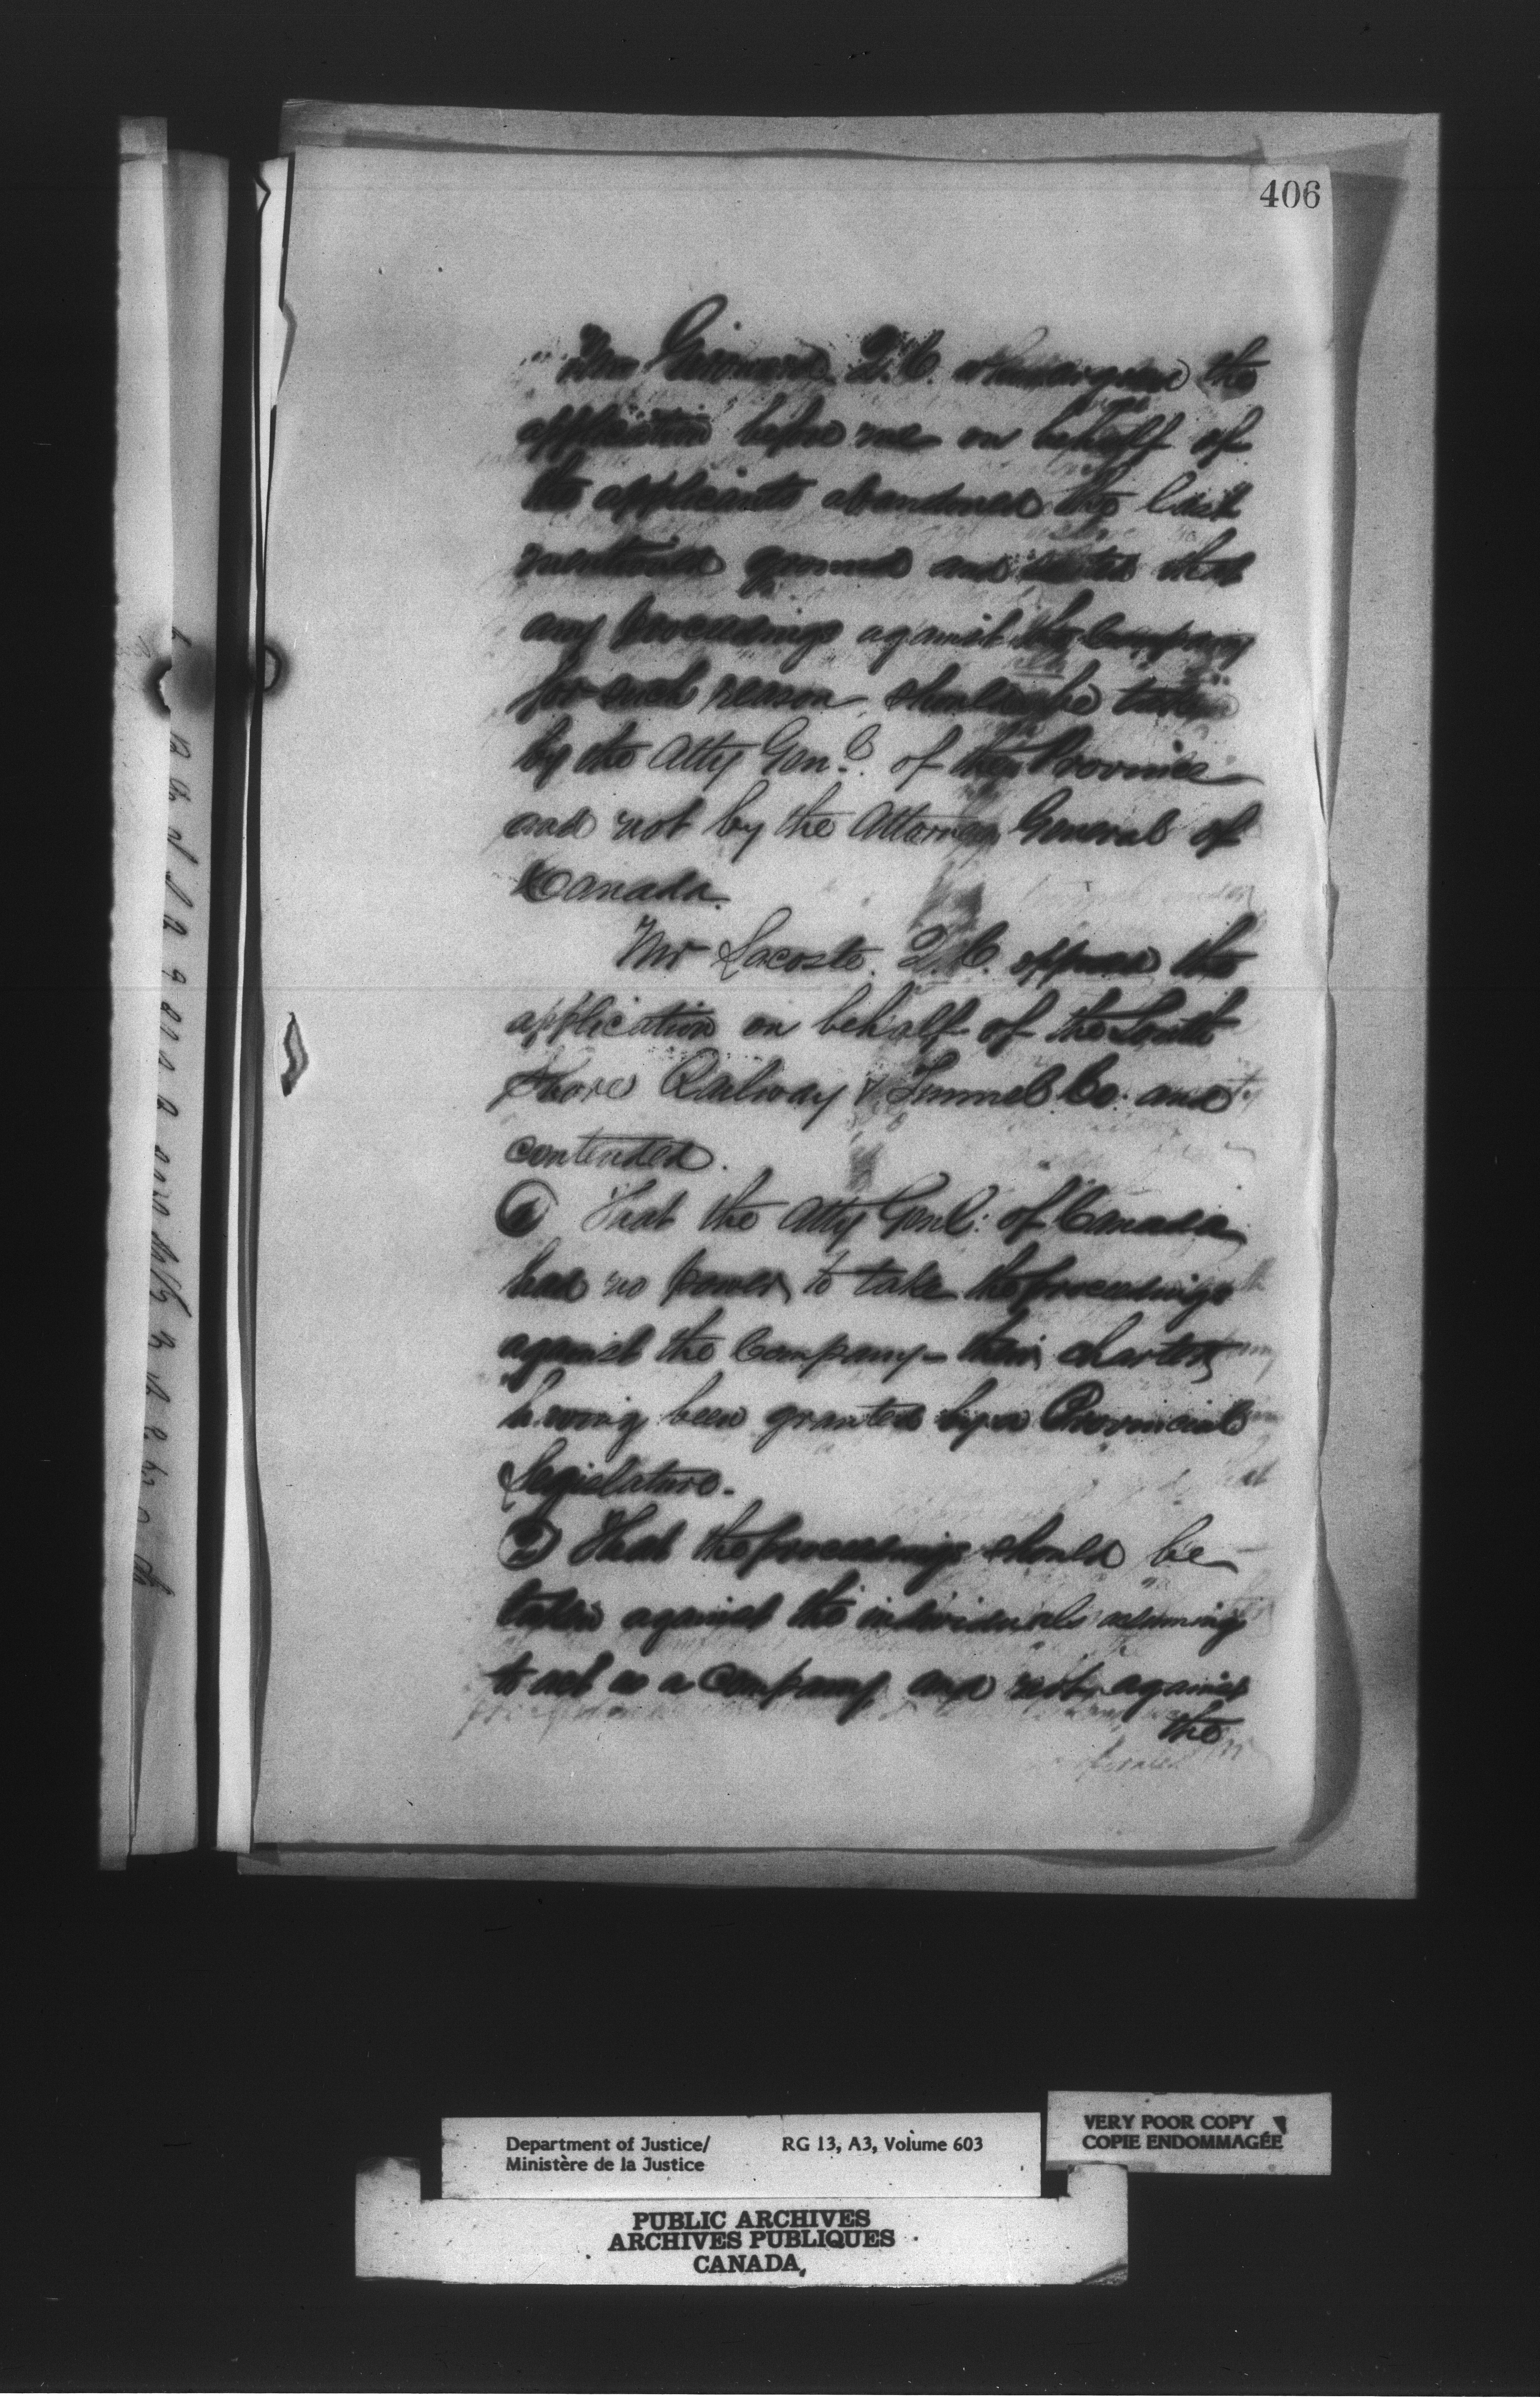 406
Mr Girouard Q.C. who argued the
application before me on behalf of
the applicants abandoned the last
mentioned ground and stated that
any proceedings against the Company
for such reason should be taken
by the Atty Genl. of the Province
and not by the Attorney General of
Canada.
Mr Lacoste Q.C. opposed the
application on behalf of the South
Shore Railway & Tunnel Co: and
contended.
① That the Atty Genl: of Canada
had no power to take the proceedings
against the Company - their charter
having been granted by a Provincial
Legislature.
② That the proceedings should be
taken against the individuals assuming
to act as a Company and not against
the
Department of Justice/ RG 13, A3, Volume 603
Ministère de la Justice
VERY POOR COPY
COPIE ENDOMMAGÉE
PUBLIC ARCHIVES
ARCHIVES PUBLIQUES
CANADA